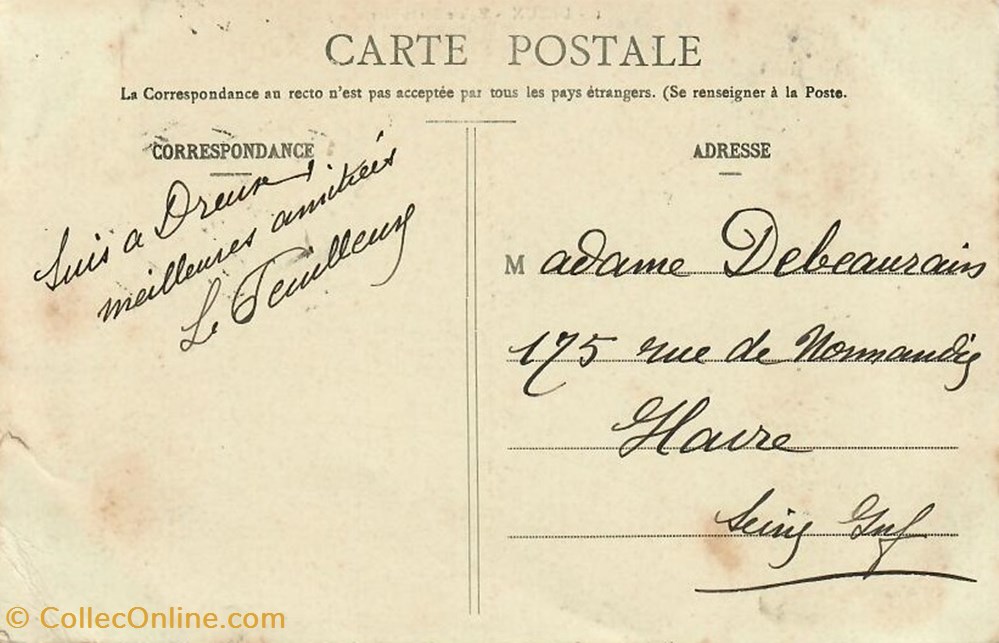 CARTE POSTALE
La Correspondance au recto n'est pas acceptée par tous les pays étrangers. (Se renseigner à la Poste.
CORRESPONDANCE
Suis a Dreux.
meilleures amitiés
Le Feuilleux
ADRESSE
Madame Debeaurain
175 rue de Normandie
Havre
Seine Inf
© CollecOnline.com